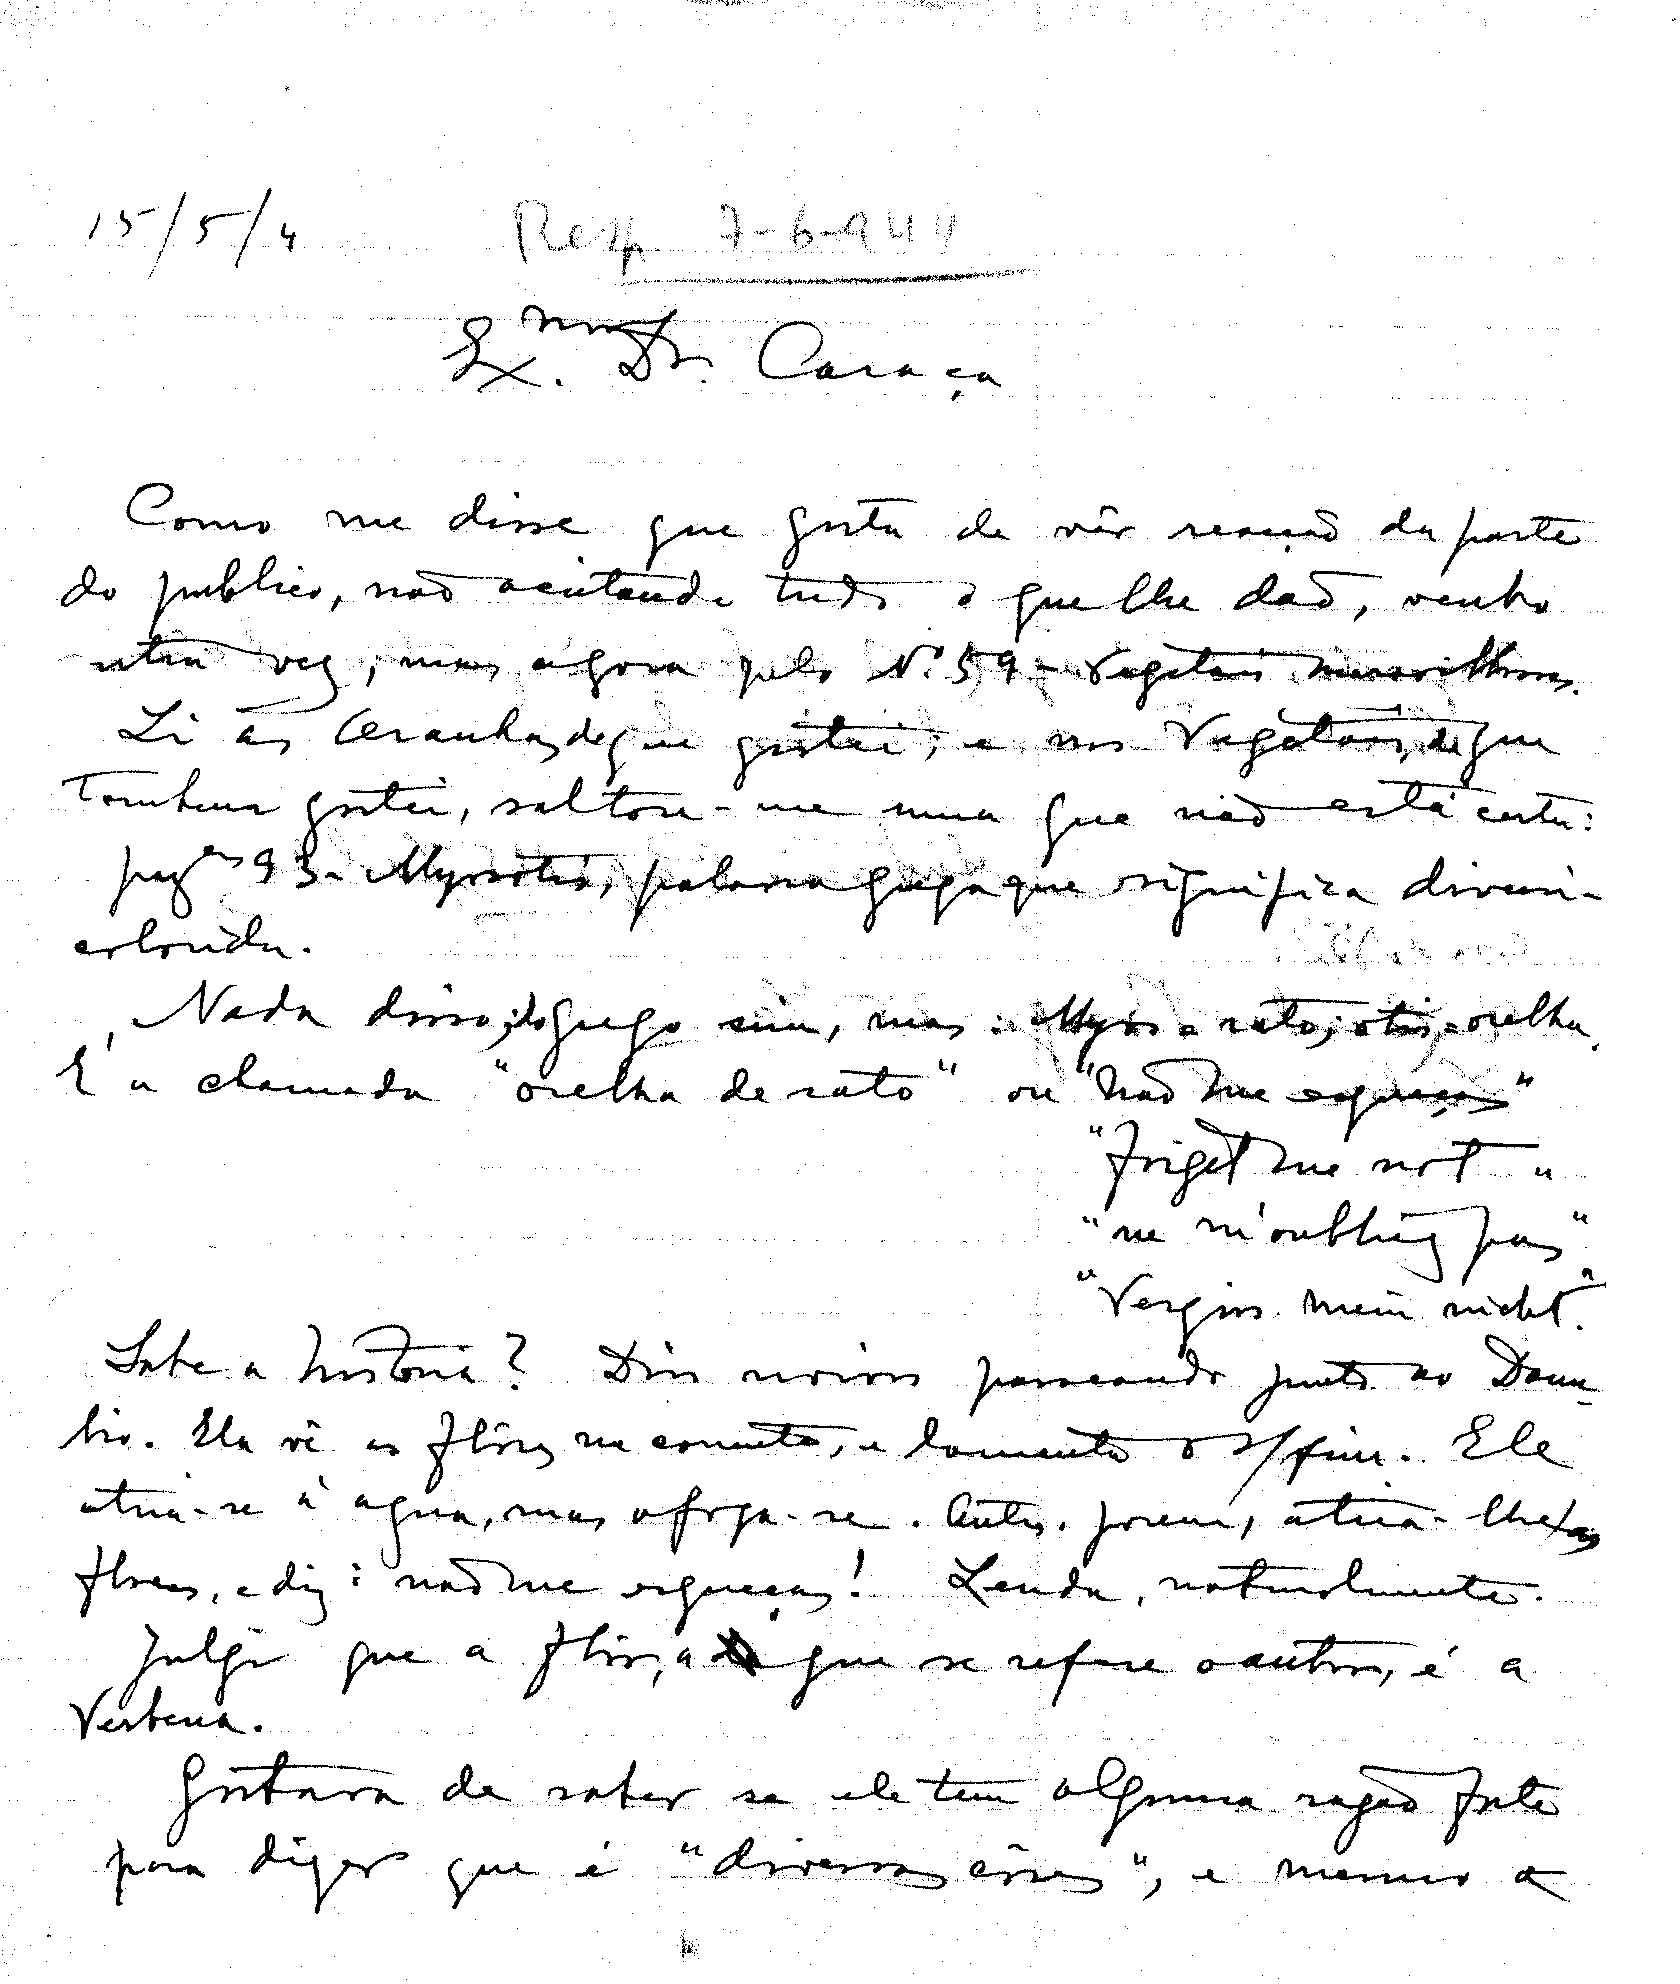 15/5/4 Resp 7-6-944
Ex.mo Dr. Caraça
Como me disse que gosta de vêr reacção da parte
do publico, não aceitando tudo o que lhe dão, venho
outra vez, mas agora pelo Nº 59 - Vegetais maravilhosos.
Li as Aranhas, de que gostei, e nos Vegetais, de que
tambem gostei, saltou-me uma que não está certa:
pagas 93 - Myosotis, palavra grega que significa diversi-
colorida.
Nada disso; do grego sim, mas : Myos = rato; otis = orelha.
É a chamada "orelha de rato" ou "Não me esqueças"
"Forget me not"
"ne m'oubliez pas"
"Vergiss mein nicht".
Sabe a história? Dois noivos passeando junto ao Danu-
bio. Ela vê as flôres na corrente, e lamenta o seu fim. Ele
atira-se á agua, mas afoga-se. Antes, porem, atira-lhe as
flores, e diz: não me esqueças! Lenda, naturalmente.
Julgo que a flôr, a que se refere o autor, é a
Verbena.
Gostava de saber se ele tem alguma razão forte
para dizer que é "diversas côres", e mesmo a